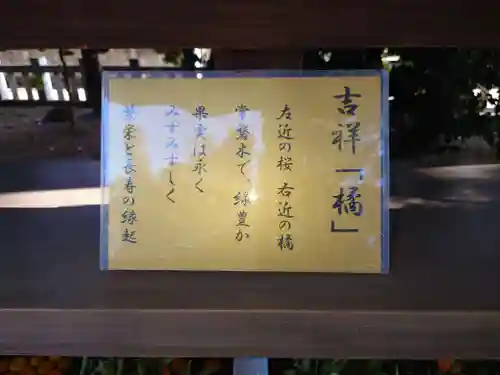 吉祥「橘」
左近の桜 右近の橘
常盤木で、緑豊か
果実は永く
みずみずしく
繁栄と長寿の縁起